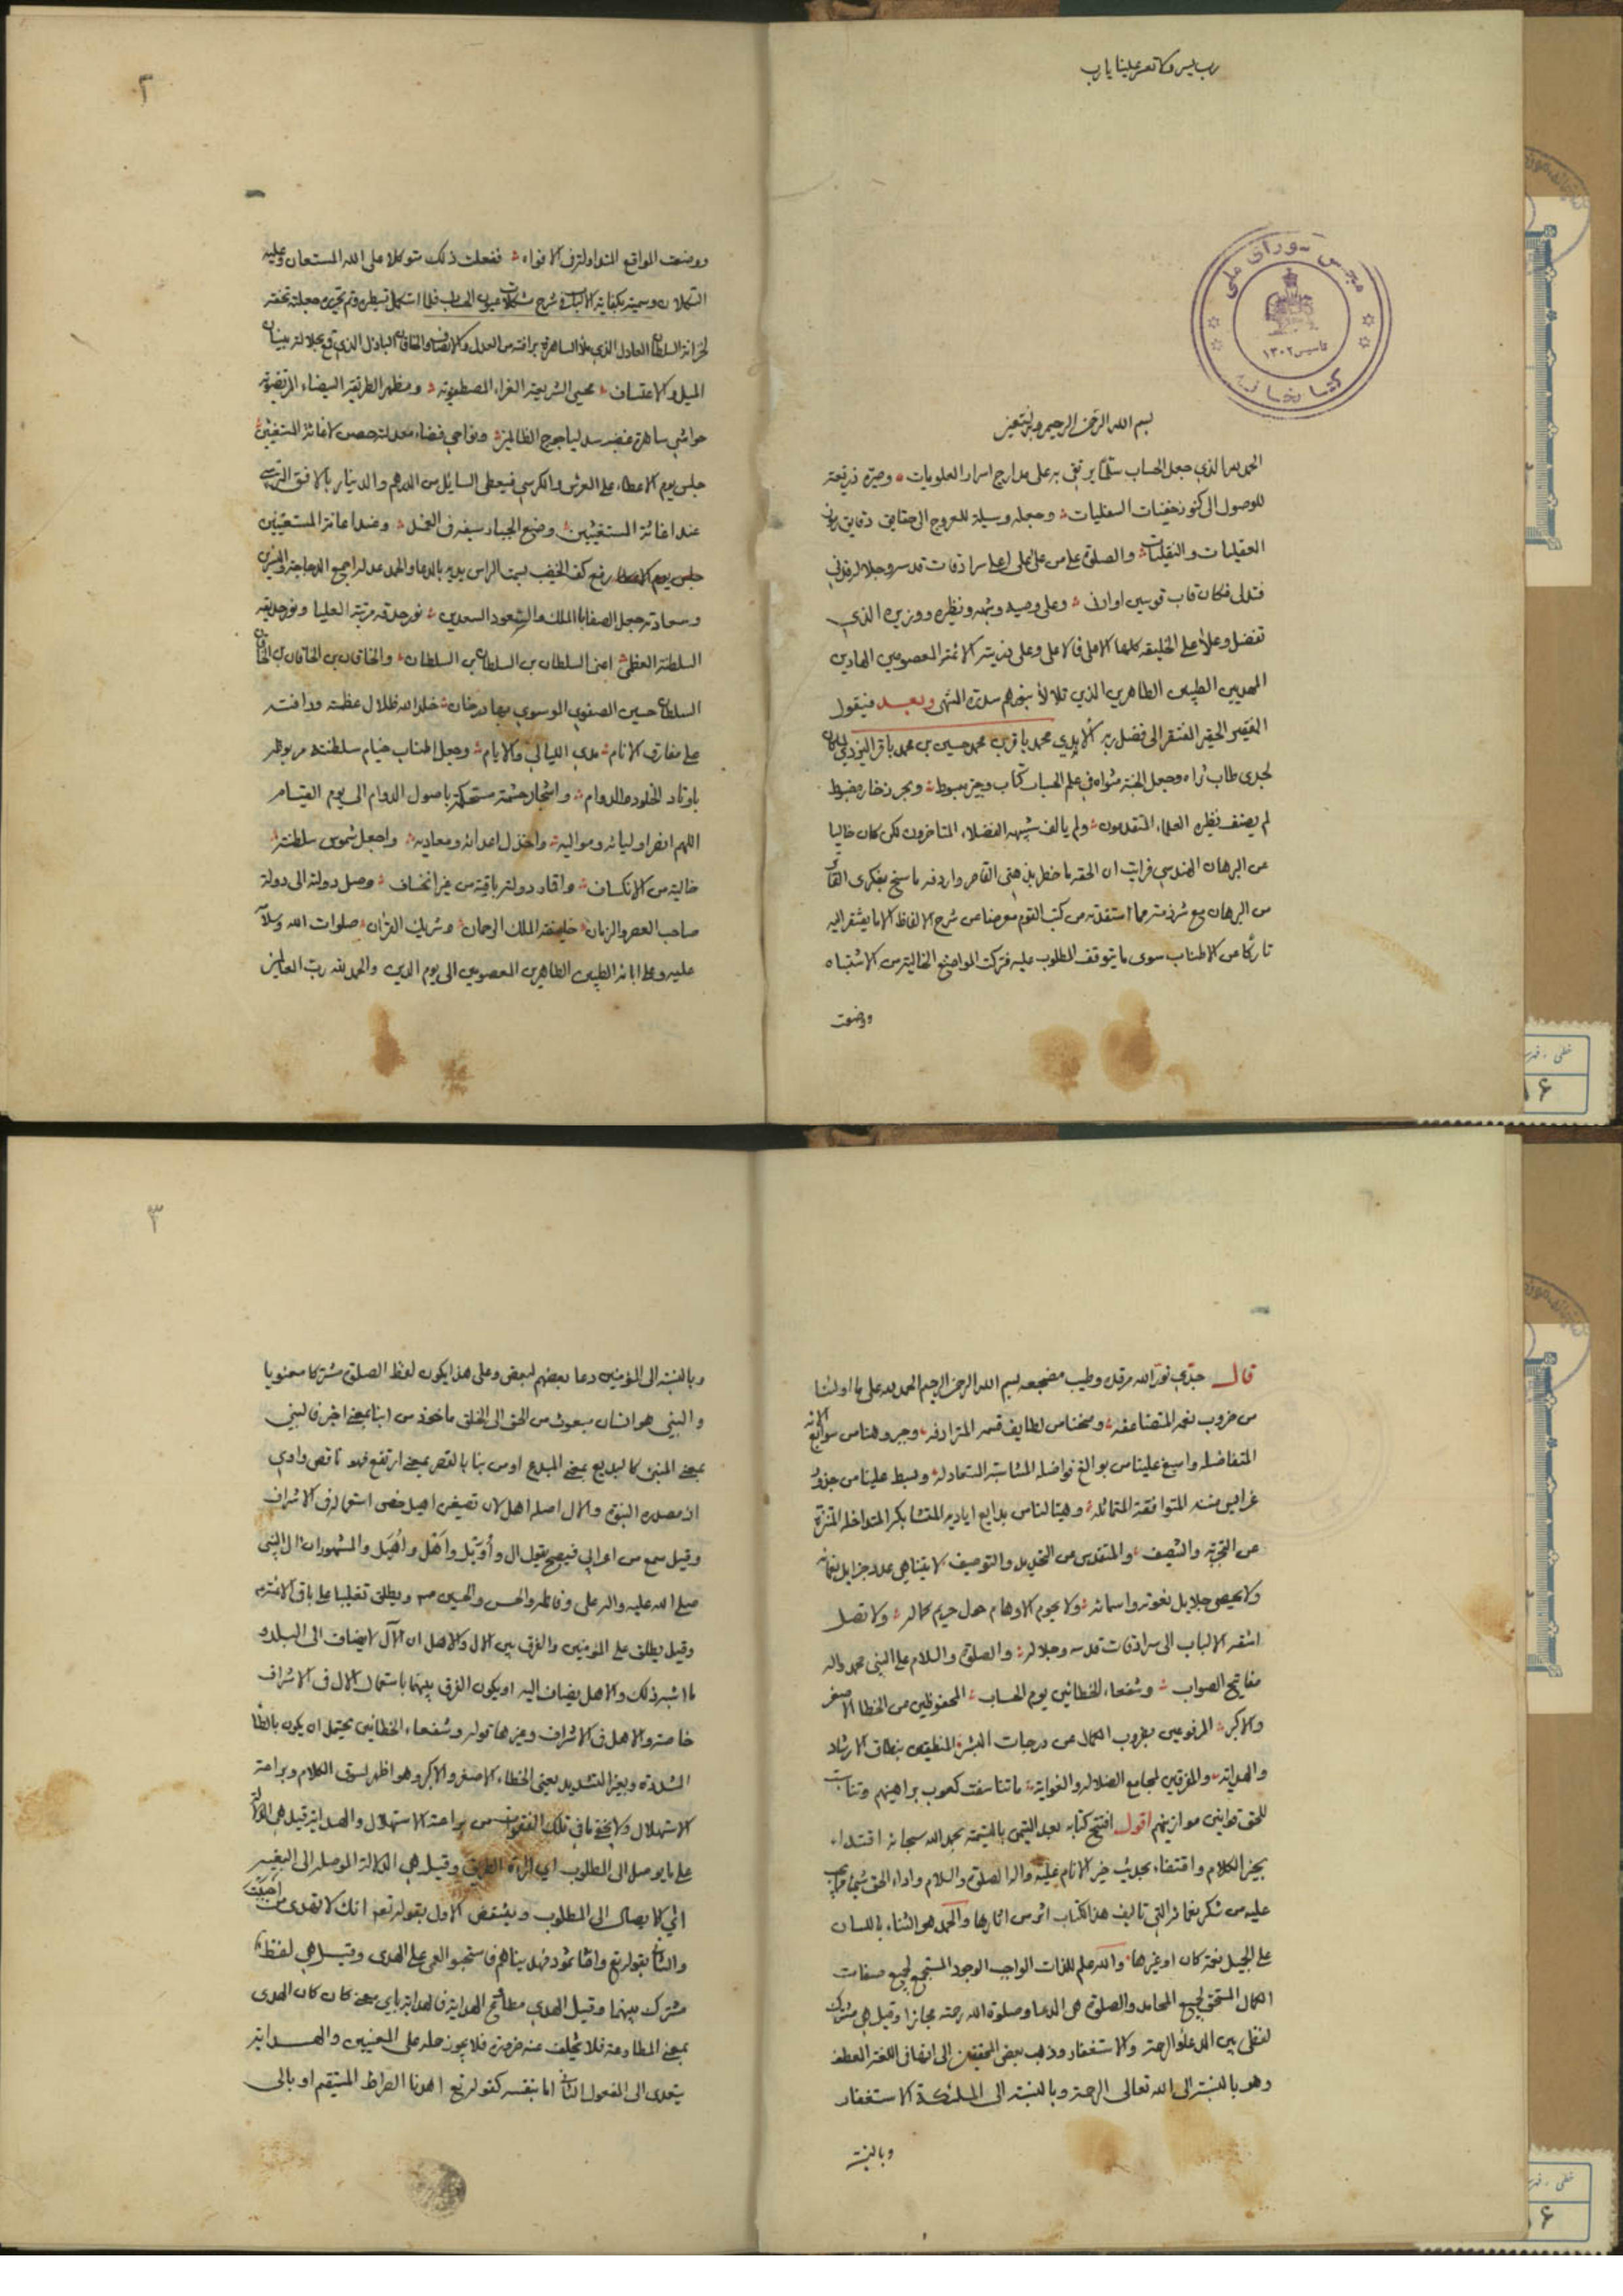 رب يسر ولا تعسر علينا يارب
مجلس شورای ملی
تاسیس ۱۳۰۲
کتابخانه
بسم الله الرحمن الرحيم وبه نستعين
الحمد لله الذي جعل الحساب سلما يرتقى به على مدارج اسرار العلويات وصيره ذريعة
للوصول الى كنوز خفيات السفليات وجعله وسيلة للعروج الى حقايق دقايق
العقليات والنقليات والصلوة على من على اعلى سرادقات قدسه وجلاله فدنى
فتدلى فكان قاب قوسين او ادنى وعلى وصيه وشبهه ونظيره ووزيره الذي
تفضل وعلا على الخليقة كلها الاعلى فالاعلى وعلى ذريته الائمة المعصومين الهادين
المهديين الطيبين الطاهرين الذي تلالا بنورهم سدرة المنتهى وبعد فيقول
الفقير الحقير المفتقر الى فضل ربه الابدي محمد باقر بن محمد حسين بن محمد باقر اليزدي كان
لجدى طاب ثراه وجعل الجنة مثواه في علم الحساب كتاب وجيز مبسوط وبحر ذخار مضبوط
لم يصنف نظيره العلماء المتقدمون ولم يالف شبيهه الفضلاء المتاخرون لكن كان خاليا
عن البرهان الهندسي فرايت ان الحقه ما خطر بذهني القاصر واردفه ما سنح بفكرى
من البرهان مع شرذمة مما استفدته من كتب القوم معرضا عن شرح الالفاظ الا ما يفتقر اليه
تاركا من الاطناب سوى ما يتوقف المطلوب عليه فتركت المواضع الخالية من الاشتباه
ووضعت
۲
ووضعت المواقع المتداولة في الافواه ففعلت ذلك متوكلا على الله المستعان وعليه
التكلان وسميته بكفاية الالباب في شرح مشكلات عيون الحساب فلما استكمل تسطيره وتم تحريره جعلته تحفة
لخزانة السلطان العادل الذي
الميل والاعتساف محيى الشريعة الغراء المصطفوية ومظهر الطريقة البيضاء المرتضوية
جلس يوم الاعطاء على العرش والكرسي فيعطى السايل من الدرهم والدينار بالافق
عند اغاثة المستغيثين وضع الجبار سيفه في الغمد وعند اعانة المستعينين
رفع كف الخضيب لسمت الراس يديه بالدعاء
السلطنة العظمى اعنى السلطان بن السلطان بن السلطان والخاقان بن الخاقان بن الخاقان
السلطان حسين الصفوي الموسوي بهادر خان خلد الله ظلال عظمته ورافته
على مفارق الانام مدى الليالي والايام وجعل اطناب خيام سلطنته مربوطة
باوتاد الخلود والدوام واشجار حشمته مستحكمة باصول الدوام الى يوم القيام
اللهم انصر اوليائه ومواليه واخذل اعدائه ومعاديه واجعل شموس سلطنته
خالية من الانكساف واقمار دولته باقية من غير انخساف وصل دولته الى دولة
صاحب العصر والزمان خليفة الملك الرحمان وشريك القران صلوات الله وسلامه
عليه وعلى ابائه الطيبين الطاهرين المعصومين الى يوم الدين والحمد لله رب العالمين
قال جدي نور الله مرقده وطيب مضجعه بسم الله الرحمن الرحيم الحمد لله على ما اولنا
من ضروب نعمه المتضاعفة ومنحنا من لطايف قسمه المترادفة
المتفاضلة واسبغ علينا من بوالغ فواضله المتناسبة المتعادلة وبسط علينا من
غرايس مننه المتوافقة المتماثلة وهيئا لنا من بدايع اياديه المتشابكة المتداخلة المنزه
عن التجزية والتنصيف والمتقدس عن التحديد والتوصيف لا يتناهى عدد جزايل نعمائه
ولا يحصى جلايل نعوته واسمائه ولا يحوم الاوهام حول حريم كماله ولا تصل
اشعة الالباب الى سرادقات قدسه وجلاله والصلوة والسلام على النبي محمد واله
مفاتيح الصواب وشفعاء الخطائين يوم الحساب المحفوظين من الخطا الاصغر
والاكبر المرفوعين بضروب الكمال عن درجات البشر المنطقين بنطاق الارشاد
والهداية والمفرقين لمجامع الضلالة والغواية ما تناسقت كعوب براهينهم
للحق قوانين موازينهم اقول افتتح كتابه بعد التيمن بالتسمية بحمد الله سبحانه اقتداء
بخير الكلام واقتفاء بحديث خير الانام عليه واله الصلوة والسلام واداء لحق شيئ مما يجب
عليه من شكر نعمائه التي تاليف هذا الكتاب اثر من اثارها والحمد هو الثناء باللسان
على الجميل نعمة كان او غيرها والله علم للذات الواجب الوجود المستجمع لجميع صفات
الكمال المستحق لجميع المحامد والصلوة هي الدعاء وصلوة الله رحمة مجازا وقيل هي مشترك
لفظي بين الدعاء والرحمة والاستغفار وذهب بعض المحققين الى انها في اللغة العطف
وهو بالنسبة الى الله تعالى الرحمة وبالنسبة الى الملئكة الاستغفار
وبالنسبة
۳
وبالنسبة الى المؤمنين دعاء بعضهم لبعض وعلى هذا يكون لفظ الصلوة مشتركا معنويا
والنبي هو انسان مبعوث من الحق الى الخلق ماخوذ من انبا بمعنى اخبر فالنبي
بمعنى المنبئ كالبديع بمعنى المبدع او من نبا بالقصر بمعنى ارتفع فهو ناقص وادي
اذ مصدره النبوة والال اصله اهل لان تصغيره اهيل خص استعماله في الاشراف
وقيل سمع من اعرابي فصيح يقول ال واويل واهل واهيل والمشهور ان ال النبي
صلى الله عليه واله على وفاطمة والحسن والحسين ويطلق تغليبا على باقي الائمة
وقيل يطلق على المؤمنين والفرق بين الال والاهل ان الآل لا يضاف الى البلد و
ما اشبه ذلك والاهل يضاف اليه او يكون الفرق بينهما باستعمال الال في الاشراف
خاصة والاهل في الاشراف وغيرها قوله وشفعاء الخطائين يحتمل ان يكون بالطاء
المشددة وبغير التشديد يعنى الخطاء الاصغر والاكبر وهو اظهر لسوق الكلام وبراعة
الاستهلال ولا يخفى ما في تلك الفقرة من براعة الاستهلال والهداية قيل هي الدلالة
على ما يوصل الى المطلوب اي اراءة الطريق وقيل هي الدلالة الموصلة الى البغية
اي الايصال الى المطلوب وينتقض الاول بقوله تعم انك لا تهدى من احببت
والثاني بقوله تع واما ثمود فهديناهم فاستحبوا العمى على الهدى وقيل هي لفظ
مشترك بينهما وقيل الهدى مطاوع الهداية فالهداية باي معنى كان كان الهدى
بمعنى المطاوعة فلا تخلف عنه ضرورة فلا يجوز حمله على المعنيين والهداية
يتعدى الى المفعول الثاني اما بنفسه كقوله تع اهدنا الصراط المستقيم او بالى